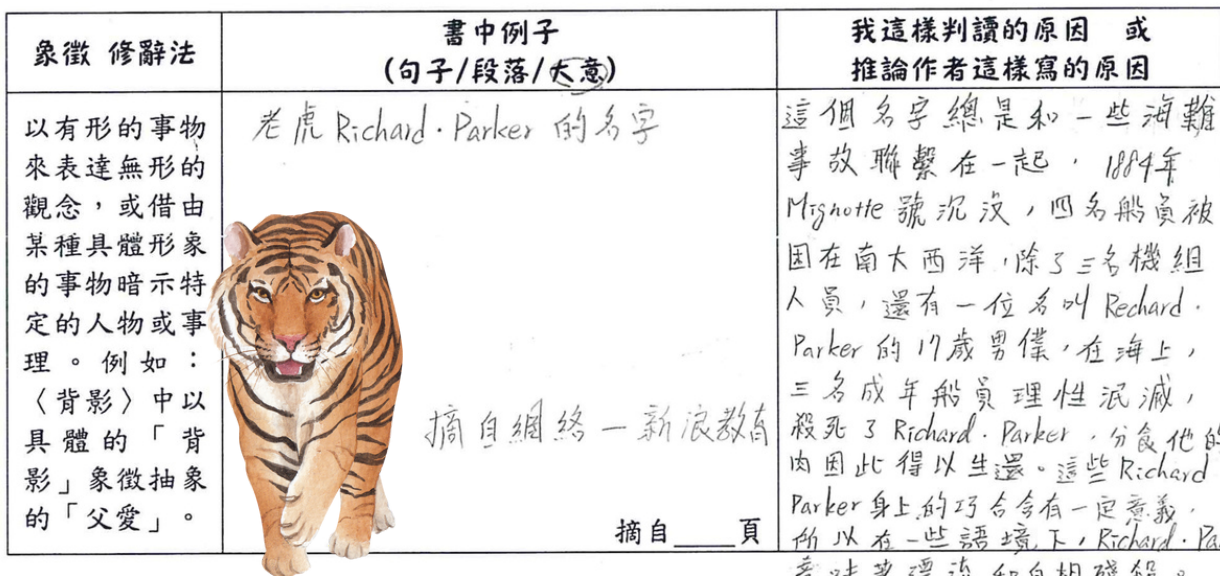 象徵 修辭法
書中例子
(句子/段落/大意)
我這樣判讀的原因 或
推論作者這樣寫的原因
以有形的事物
來表達無形的
觀念，或借由
某種具體形象
的事物暗示特
定的人物或事
理。例如：
〈背影〉中以
具體的「背
影」象徵抽象
的「父愛」。
老虎 Richard·Parker 的名字
摘自網絡一新浪教育
摘自____頁
這個名字總是和一些海難
事故聯繫在一起，1884年
Mignotte 號沉沒，四名船員被
困在南大西洋，除了三名機組
人員，還有一位名叫 Rechard·
Parker 的17歲男僕，在海上，
三名成年船員理性泯滅，
殺死了 Richard·Parker，分食他的
肉因此得以生還。這些 Richard
Parker 身上的巧合含有一定意義，
所以在一些語境下，Richard·Pa
意味著漂流和自相殘殺。